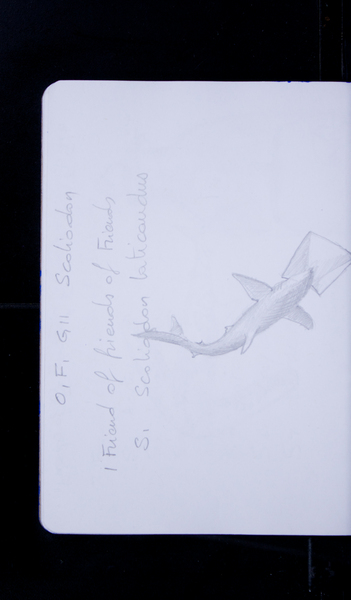 O, F, G11 Scoliodon
1 Friend of friends of Friends
S, Scoliodon laticaudus